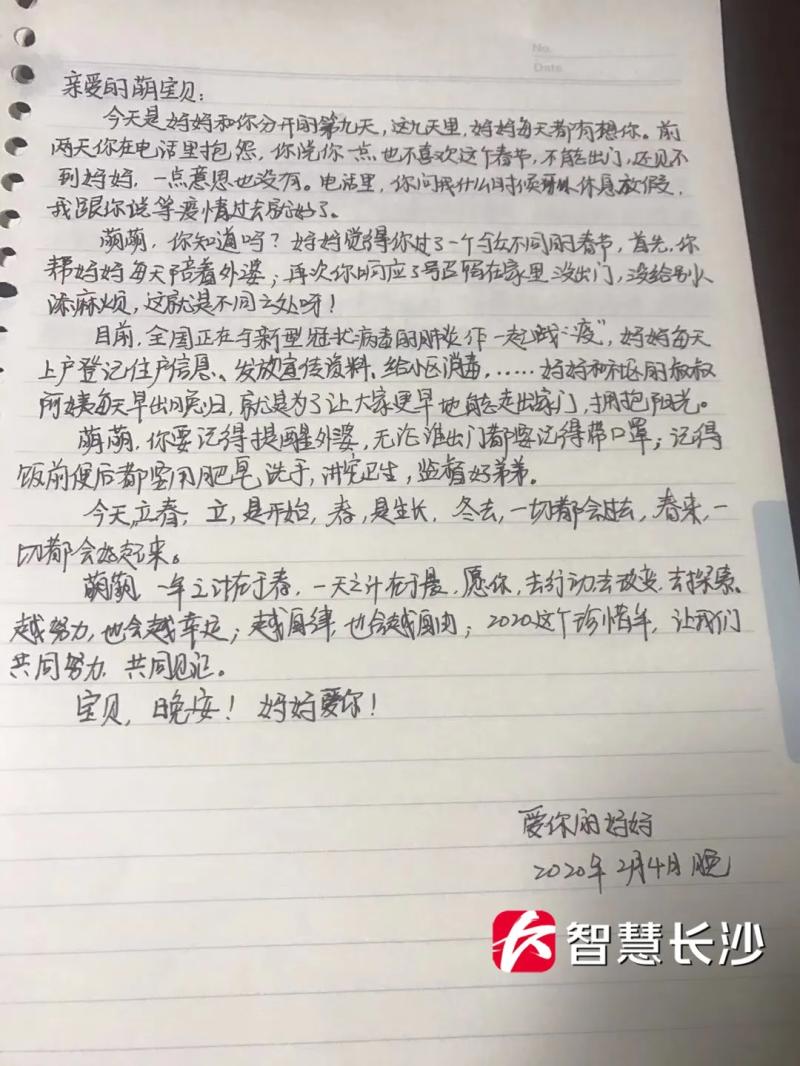 No.
Date
亲爱的萌宝贝：
今天是妈妈和你分开的第九天，这九天里，妈妈每天都有想你。前
两天你在电话里抱怨，你说你一点也不喜欢这个春节，不能出门，还见不
到妈妈，一点意思也没有。电话里，你问我什么时候休息放假，
我跟你说等疫情过去就好了。
萌萌，你知道吗？妈妈觉得你过了一个与众不同的春节，首先，你
帮妈妈每天陪着外婆；再次你响应了号召留在家里没出门，没给别人
添麻烦，这就是不同之处呀！
目前，全国正在与新型冠状病毒的肺炎作一起战“疫”，妈妈每天
上户登记住户信息、发放宣传资料、给小区消毒，……妈妈和社区的叔叔
阿姨每天早出晚归，就是为了让大家更早地能走出家门，拥抱阳光。
萌萌，你要记得提醒外婆，无论谁出门都要记得带口罩；记得
饭前便后都要用肥皂洗手，讲究卫生，监督好弟弟。
今天，立春，立，是开始，春，是生长，冬去，一切都会过去，春来，一
切都会好起来。
萌萌，一年之计在于春，一天之计在于晨，愿你，去行动，去改变，去探索，
越努力，也会越幸运；越自律，也会越自由；2020这个珍惜年，让我们
共同努力，共同见证。
宝贝，晚安！妈妈爱你！
爱你的妈妈
2020年2月4日晚
智慧长沙